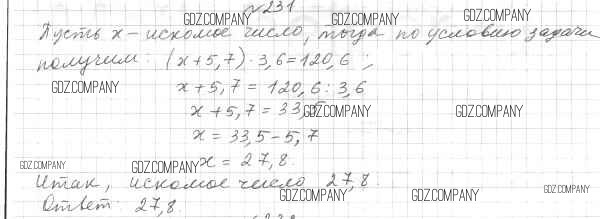 №231
Пусть x - искомое число, тогда по условию задачи
получим: (x+5,7)·3,6=120,6;
x+5,7 = 120,6 : 3,6
x+5,7 = 33,5
x = 33,5-5,7
x = 27,8.
Итак, искомое число 27,8.
Ответ: 27,8.
GDZ.COMPANY GDZ.COMPANY GDZ.COMPANY
GDZ.COMPANY
GDZ.COMPANY GDZ.COMPANY
GDZ.COMPANY GDZ.COMPANY
GDZ.COMPANY GDZ.COMPANY GDZ.COMPANY